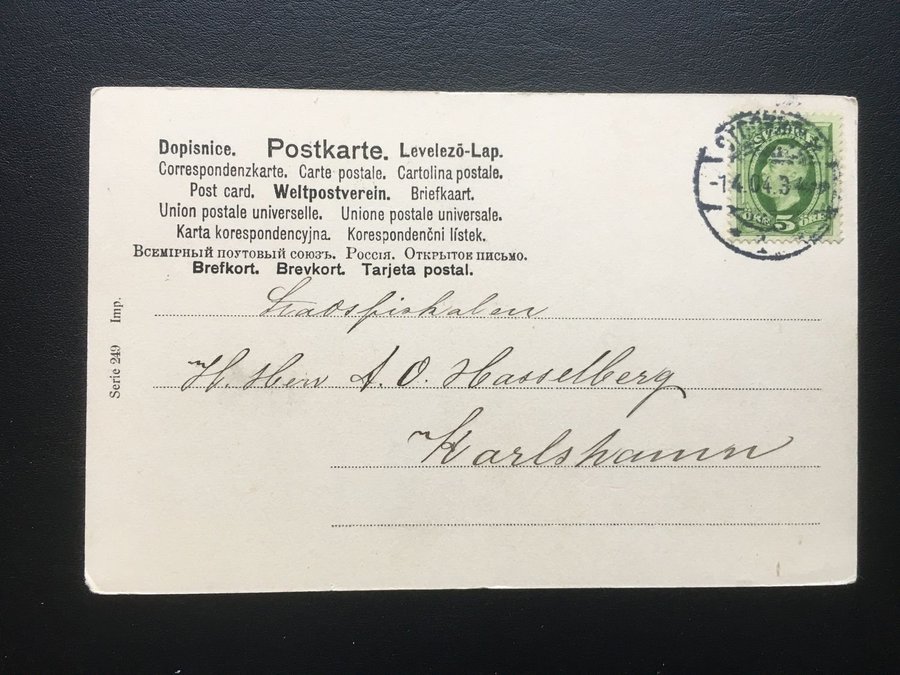 Dopisnice. Postkarte. Levelező-Lap.
Correspondenzkarte. Carte postale. Cartolina postale.
Post card. Weltpostverein. Briefkaart.
Union postale universelle. Unione postale universale.
Karta korespondencyjna. Korespondenční lístek.
Всемірный поутовый союзъ. Россія. Открытое письмо.
Brefkort. Brevkort. Tarjeta postal.
Stadsfiskalen
H. Herr A. O. Hasselberg
Karlshamn
Serie 249 Imp.
SVERIGE
5
ÖRE
1.4.04.
1